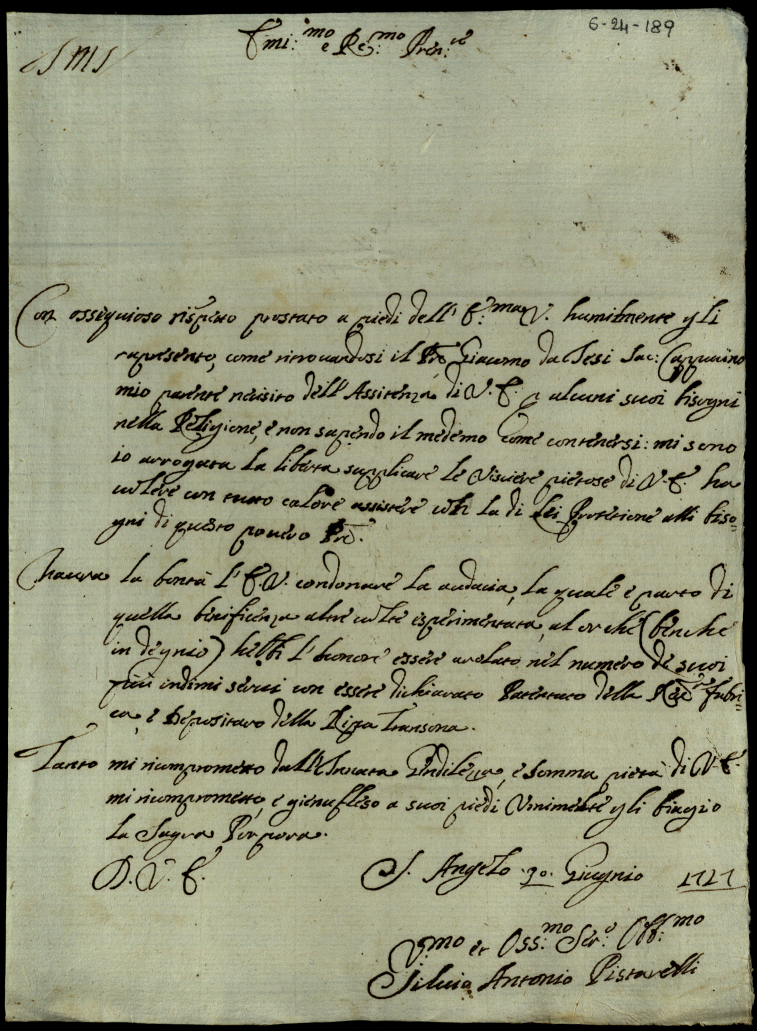 6-24-189
Emi:mo e Re:mo Pren:e
JMJ
Con ossequioso rispetto prostrato a piedi dell' E.ma V. humilmente gli
rapresento, come ritrovandosi il Pre Giacomo da Jesi Sac: Cappuccino
mio parente necissito dell' Assitenza di V. E. p alcuni suoi bisogni
nella Religione, e non sapendo il medemo come contenersi: mi sono
io arrogata la liberta supplicare le Visciere pietose di V. E. ha
volere con tutto calore assistere coth la di Lei Protetione alli biso=
gni di questo povero Pre.
Haura la bontà l' E. V. condonare la audacia, la quale e parto di
quella benificenza altre volte esperimentata, al orchè (benche
indegnio) hebbi l' honore essere arolato nel numero de suoi
più infimi servi con essere dichiarato Patentato della Re: fabri=
ca, e Depositaro della Ripa Transona.
Tanto mi ricomprometto dall' Gentilezza, e somma pietà di V. E.
mi ricomprometto, e gienufleso a suoi piedi Vmimente gli biagio
la Sagra Porpora.
D. V. E.
S. Angelo 20 Giugnio 1727
V:mo et Oss:mo Ser:e Obb:mo
Silvio Antonio Pistarelli